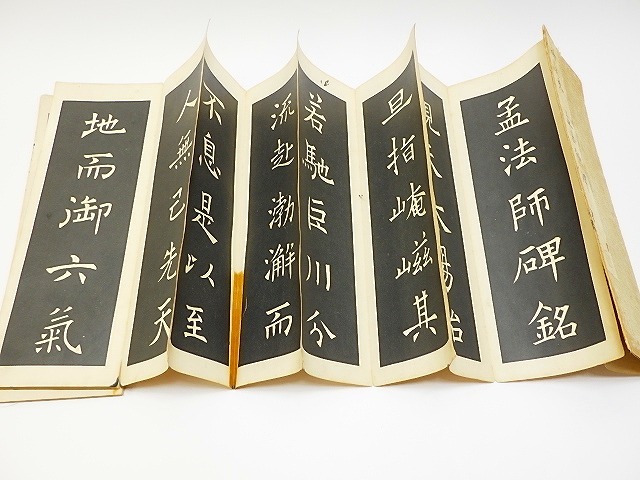 孟法師碑銘
陽始
旦指崦嵫其
若馳巨川分
流赴渤澥而
不息是以至
人無己先天
地而御六氣